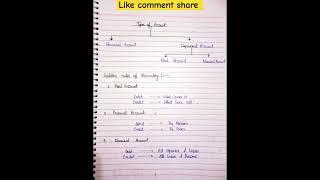 Like comment share
Type of Account
Personal Account
Impersonal Account
Real Account
Nominal Account
Golden rules of Accounting :-
1. Real Account
Debit → What comes in
Credit → What Goes out
2. Personal Account
Debit → The Receiver
Credit → The Giver
3. Nominal Account
Debit → All Expenses & Losses
Credit → All